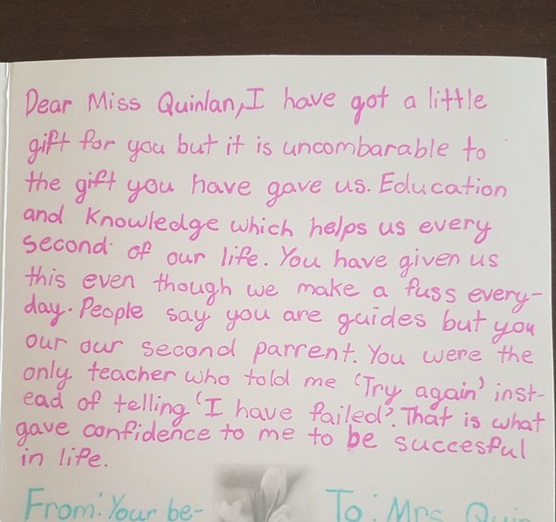 Dear Miss Quinlan, I have got a little
gift for you but it is uncombarable to
the gift you have gave us. Education
and knowledge which helps us every
second of our life. You have given us
this even though we make a fuss every-
day. People say you are guides but you
our our second parrent. You were the
only teacher who told me 'Try again' inst-
ead of telling 'I have failed'. That is what
gave confidence to me to be succesful
in life.
From: Your be-
To: Mrs Quin